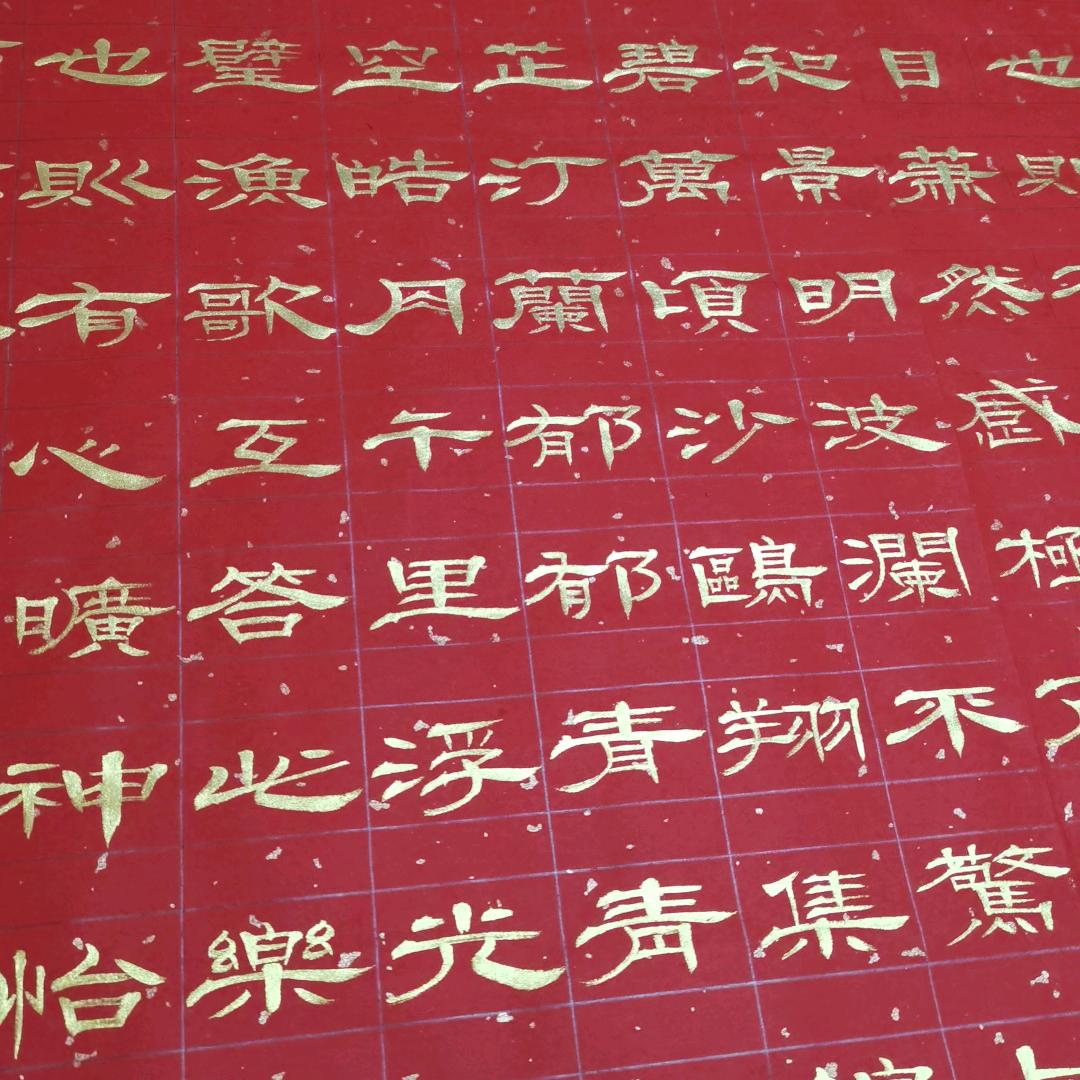 也則
目蕭然感極
和景明波瀾不驚
碧萬頃沙鷗翔集
芷汀蘭郁郁青青
空皓月千里浮光
璧漁歌互答此樂
也則有心曠神怡